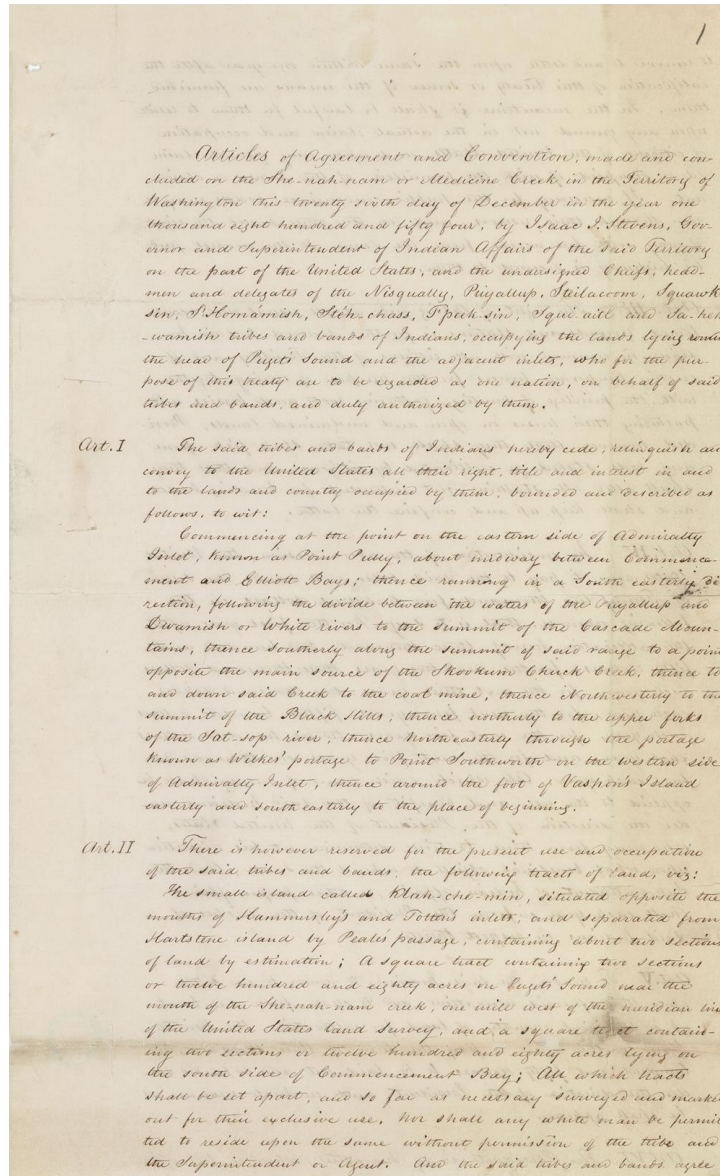 1
Articles of Agreement and Convention, made and con-
cluded on the She-nah-nam or Medicine Creek in the Territory of
Washington this twenty sixth day of December in the year one
thousand eight hundred and fifty four, by Isaac I. Stevens, Gov-
ernor and Superintendent of Indian Affairs of the said Territory
on the part of the United States, and the undersigned Chiefs, head-
men and delegates of the Nisqually, Puyallup, Steilacoom, Squawk-
sin, S'Homamish, Steh-chass, T'peek-sin, Squi-aitl and Sa-heh-
-wamish tribes and bands of Indians, occupying the lands lying round
the head of Puget's Sound and the adjacent inlets, who for the pur-
pose of this treaty are to be regarded as one nation, on behalf of said
tribes and bands, and duly authorized by them.
Art. I The said tribes and bands of Indians hereby cede, relinquish and
convey to the United States all their right, title and interest in and
to the lands and country occupied by them, bounded and described as
follows, to wit:
Commencing at the point on the eastern side of Admiralty
Inlet, known as Point Pully, about midway between Commence-
ment and Elliott Bays; thence running in a South easterly di
rection, following the divide between the waters of the Puyallup and
Dwamish or White rivers to the summit of the Cascade Moun-
tains, thence southerly along the summit of said range to a point
opposite the main source of the Skookum Chuck Creek, thence to
and down said Creek to the coal mine, thence Northwesterly to the
summit of the Black Hills, thence northerly to the upper forks
of the Sat-sop river, thence northeasterly through the portage
known as Wilkes' portage to Point Southworth on the western side
of Admiralty Inlet, thence around the foot of Vashon's Island
easterly and south easterly to the place of beginning.
Art. II There is however reserved for the present use and occupation
of the said tribes and bands, the following tracts of land, viz:
The small island called Klah-che-min, situated opposite the
mouths of Hammersley's and Totten's inlets, and separated from
Hartstene island by Peale's passage, containing about two sections
of land by estimation; A square tract containing two sections
or twelve hundred and eighty acres on Puget's Sound near the
mouth of the She-nah-nam creek, one mile west of the meridian line
of the United States land survey, and a square tract contain-
ing two sections or twelve hundred and eighty acres lying on
the south side of Commencement Bay; All which tracts
shall be set apart, and so far as necessary surveyed and marked
out for their exclusive use, nor shall any white man be permit
ted to reside upon the same without permission of the tribe and
the Superintendent or Agent. And the said tribes and bands agree